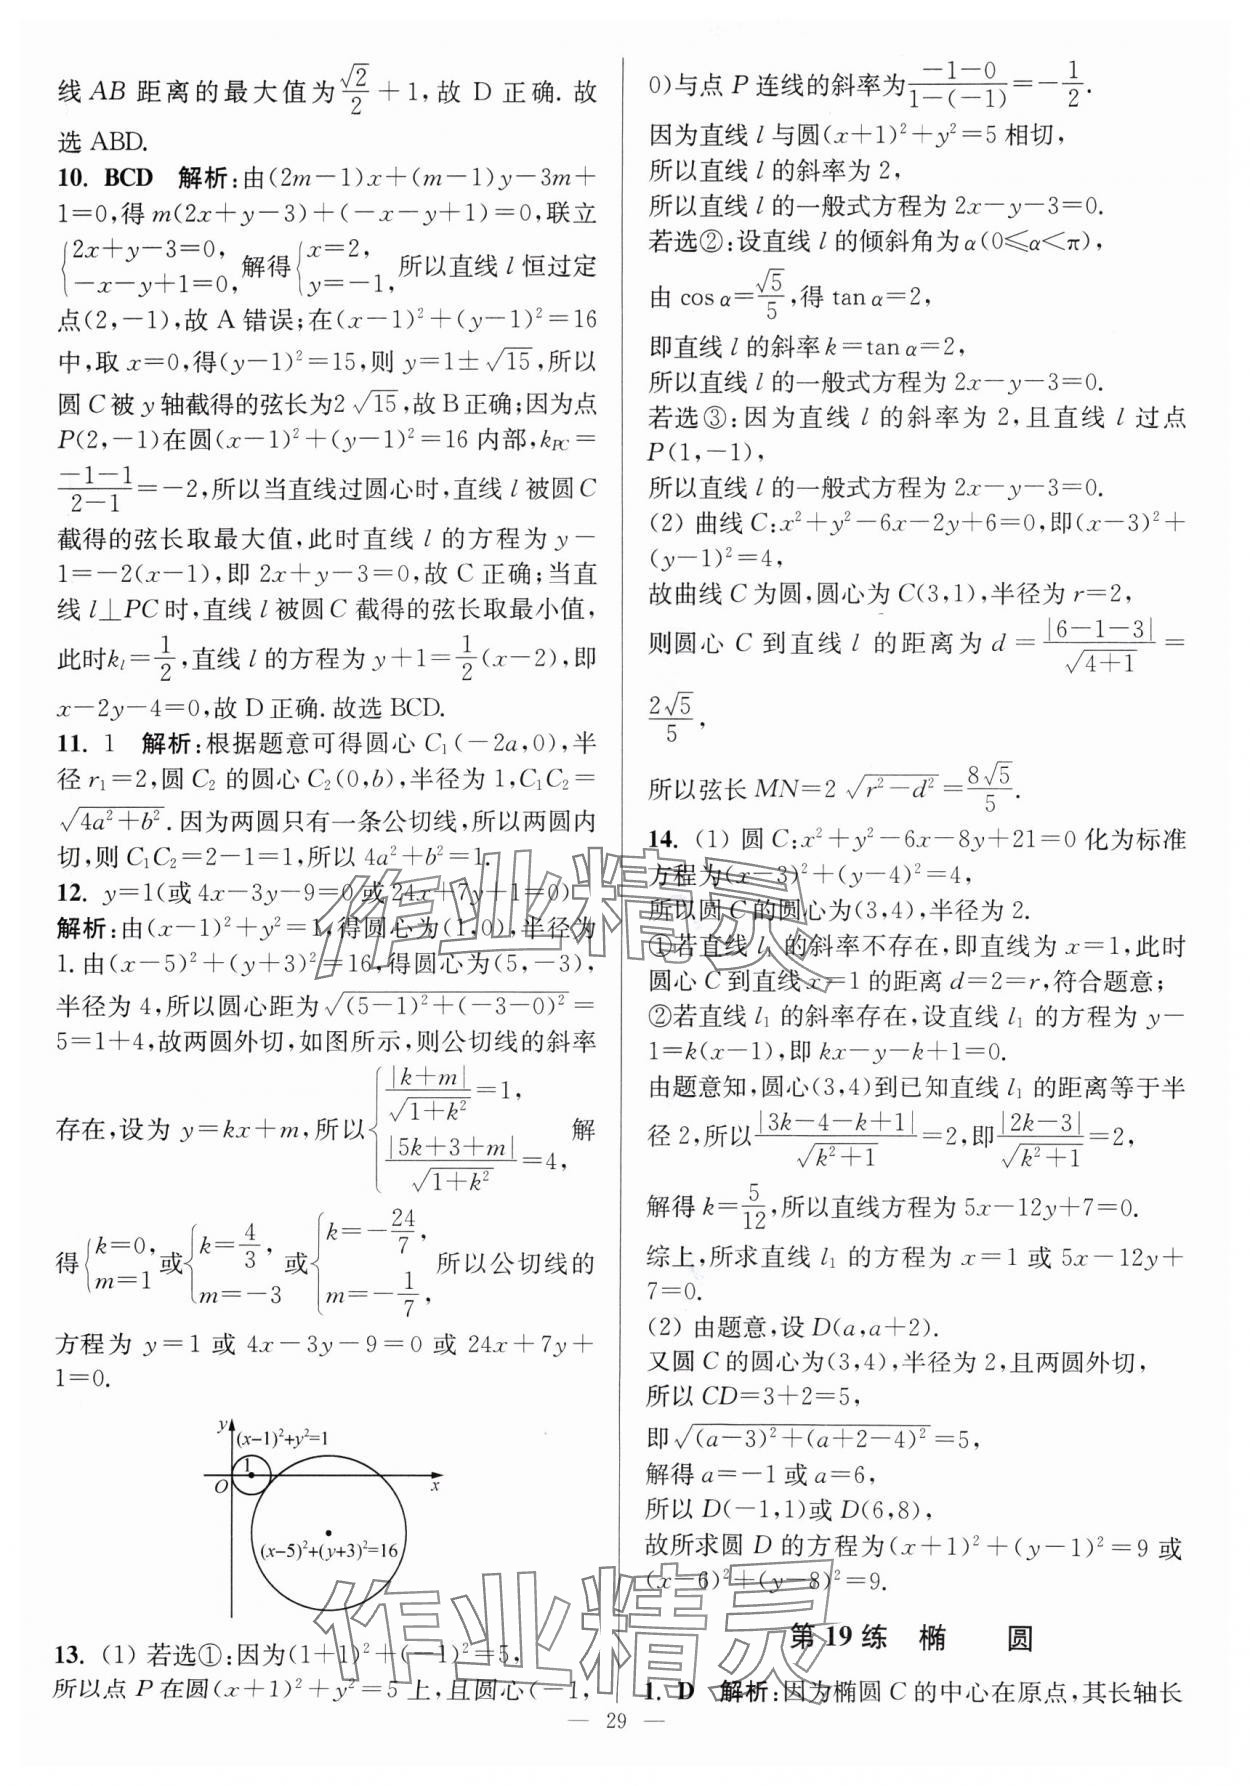 线 AB 距离的最大值为√2/2+1,故 D 正确. 故
选 ABD.
10. BCD 解析:由(2m-1)x+(m-1)y-3m+
1=0,得 m(2x+y-3)+(-x-y+1)=0,联立
{2x+y-3=0, -x-y+1=0, 解得{x=2, y=-1, 所以直线 l 恒过定
点(2,-1),故 A 错误;在(x-1)²+(y-1)²=16
中,取 x=0,得(y-1)²=15,则 y=1±√15,所以
圆 C 被 y 轴截得的弦长为2√15,故 B 正确;因为点
P(2,-1)在圆(x-1)²+(y-1)²=16 内部,k_PC=
(-1-1)/(2-1)=-2,所以当直线过圆心时,直线 l 被圆 C
截得的弦长取最大值,此时直线 l 的方程为 y-
1=-2(x-1),即 2x+y-3=0,故 C 正确;当直
线 l⊥PC 时,直线 l 被圆 C 截得的弦长取最小值,
此时k_l=1/2,直线 l 的方程为 y+1=1/2(x-2),即
x-2y-4=0,故 D 正确. 故选 BCD.
11. 1 解析:根据题意可得圆心 C₁(-2a,0),半
径 r₁=2,圆 C₂ 的圆心 C₂(0,b),半径为 1,C₁C₂=
√(4a²+b²).因为两圆只有一条公切线,所以两圆内
切,则 C₁C₂=2-1=1,所以 4a²+b²=1.
12. y=1(或 4x-3y-9=0 或 24x+7y+1=0)
解析:由(x-1)²+y²=1,得圆心为(1,0),半径为
1.由(x-5)²+(y+3)²=16,得圆心为(5,-3),
半径为 4,所以圆心距为√((5-1)²+(-3-0)²)=
5=1+4,故两圆外切,如图所示,则公切线的斜率
存在,设为 y=kx+m,所以{|k+m|/√(1+k²)=1, |5k+3+m|/√(1+k²)=4, 解
得{k=0, m=1 或{k=4/3, m=-3 或{k=-24/7, m=-1/7, 所以公切线的
方程为 y=1 或 4x-3y-9=0 或 24x+7y+
1=0.
y
(x-1)²+y²=1
1
O
x
(x-5)²+(y+3)²=16
13. (1) 若选①:因为(1+1)²+(-1)²=5,
所以点 P 在圆(x+1)²+y²=5 上,且圆心(-1,
0)与点 P 连线的斜率为(-1-0)/(1-(-1))=-1/2.
因为直线 l 与圆(x+1)²+y²=5 相切,
所以直线 l 的斜率为 2,
所以直线 l 的一般式方程为 2x-y-3=0.
若选②:设直线 l 的倾斜角为 α(0≤α<π),
由 cos α=√5/5,得 tan α=2,
即直线 l 的斜率 k=tan α=2,
所以直线 l 的一般式方程为 2x-y-3=0.
若选③:因为直线 l 的斜率为 2,且直线 l 过点
P(1,-1),
所以直线 l 的一般式方程为 2x-y-3=0.
(2) 曲线 C:x²+y²-6x-2y+6=0,即(x-3)²+
(y-1)²=4,
故曲线 C 为圆,圆心为 C(3,1),半径为 r=2,
则圆心 C 到直线 l 的距离为 d=|6-1-3|/√(4+1)=
2√5/5,
所以弦长 MN=2√(r²-d²)=8√5/5.
14. (1) 圆 C:x²+y²-6x-8y+21=0 化为标准
方程为(x-3)²+(y-4)²=4,
所以圆 C 的圆心为(3,4),半径为 2.
①若直线 l₁ 的斜率不存在,即直线为 x=1,此时
圆心 C 到直线 x=1 的距离 d=2=r,符合题意;
②若直线 l₁ 的斜率存在,设直线 l₁ 的方程为 y-
1=k(x-1),即 kx-y-k+1=0.
由题意知,圆心(3,4)到已知直线 l₁ 的距离等于半
径 2,所以|3k-4-k+1|/√(k²+1)=2,即|2k-3|/√(k²+1)=2,
解得 k=5/12,所以直线方程为 5x-12y+7=0.
综上,所求直线 l₁ 的方程为 x=1 或 5x-12y+
7=0.
(2) 由题意,设 D(a,a+2).
又圆 C 的圆心为(3,4),半径为 2,且两圆外切,
所以 CD=3+2=5,
即√((a-3)²+(a+2-4)²)=5,
解得 a=-1 或 a=6,
所以 D(-1,1)或 D(6,8),
故所求圆 D 的方程为(x+1)²+(y-1)²=9 或
(x-6)²+(y-8)²=9.
第 19 练 椭 圆
1. D 解析:因为椭圆 C 的中心在原点,其长轴长
— 29 —
作业精灵
作业精灵